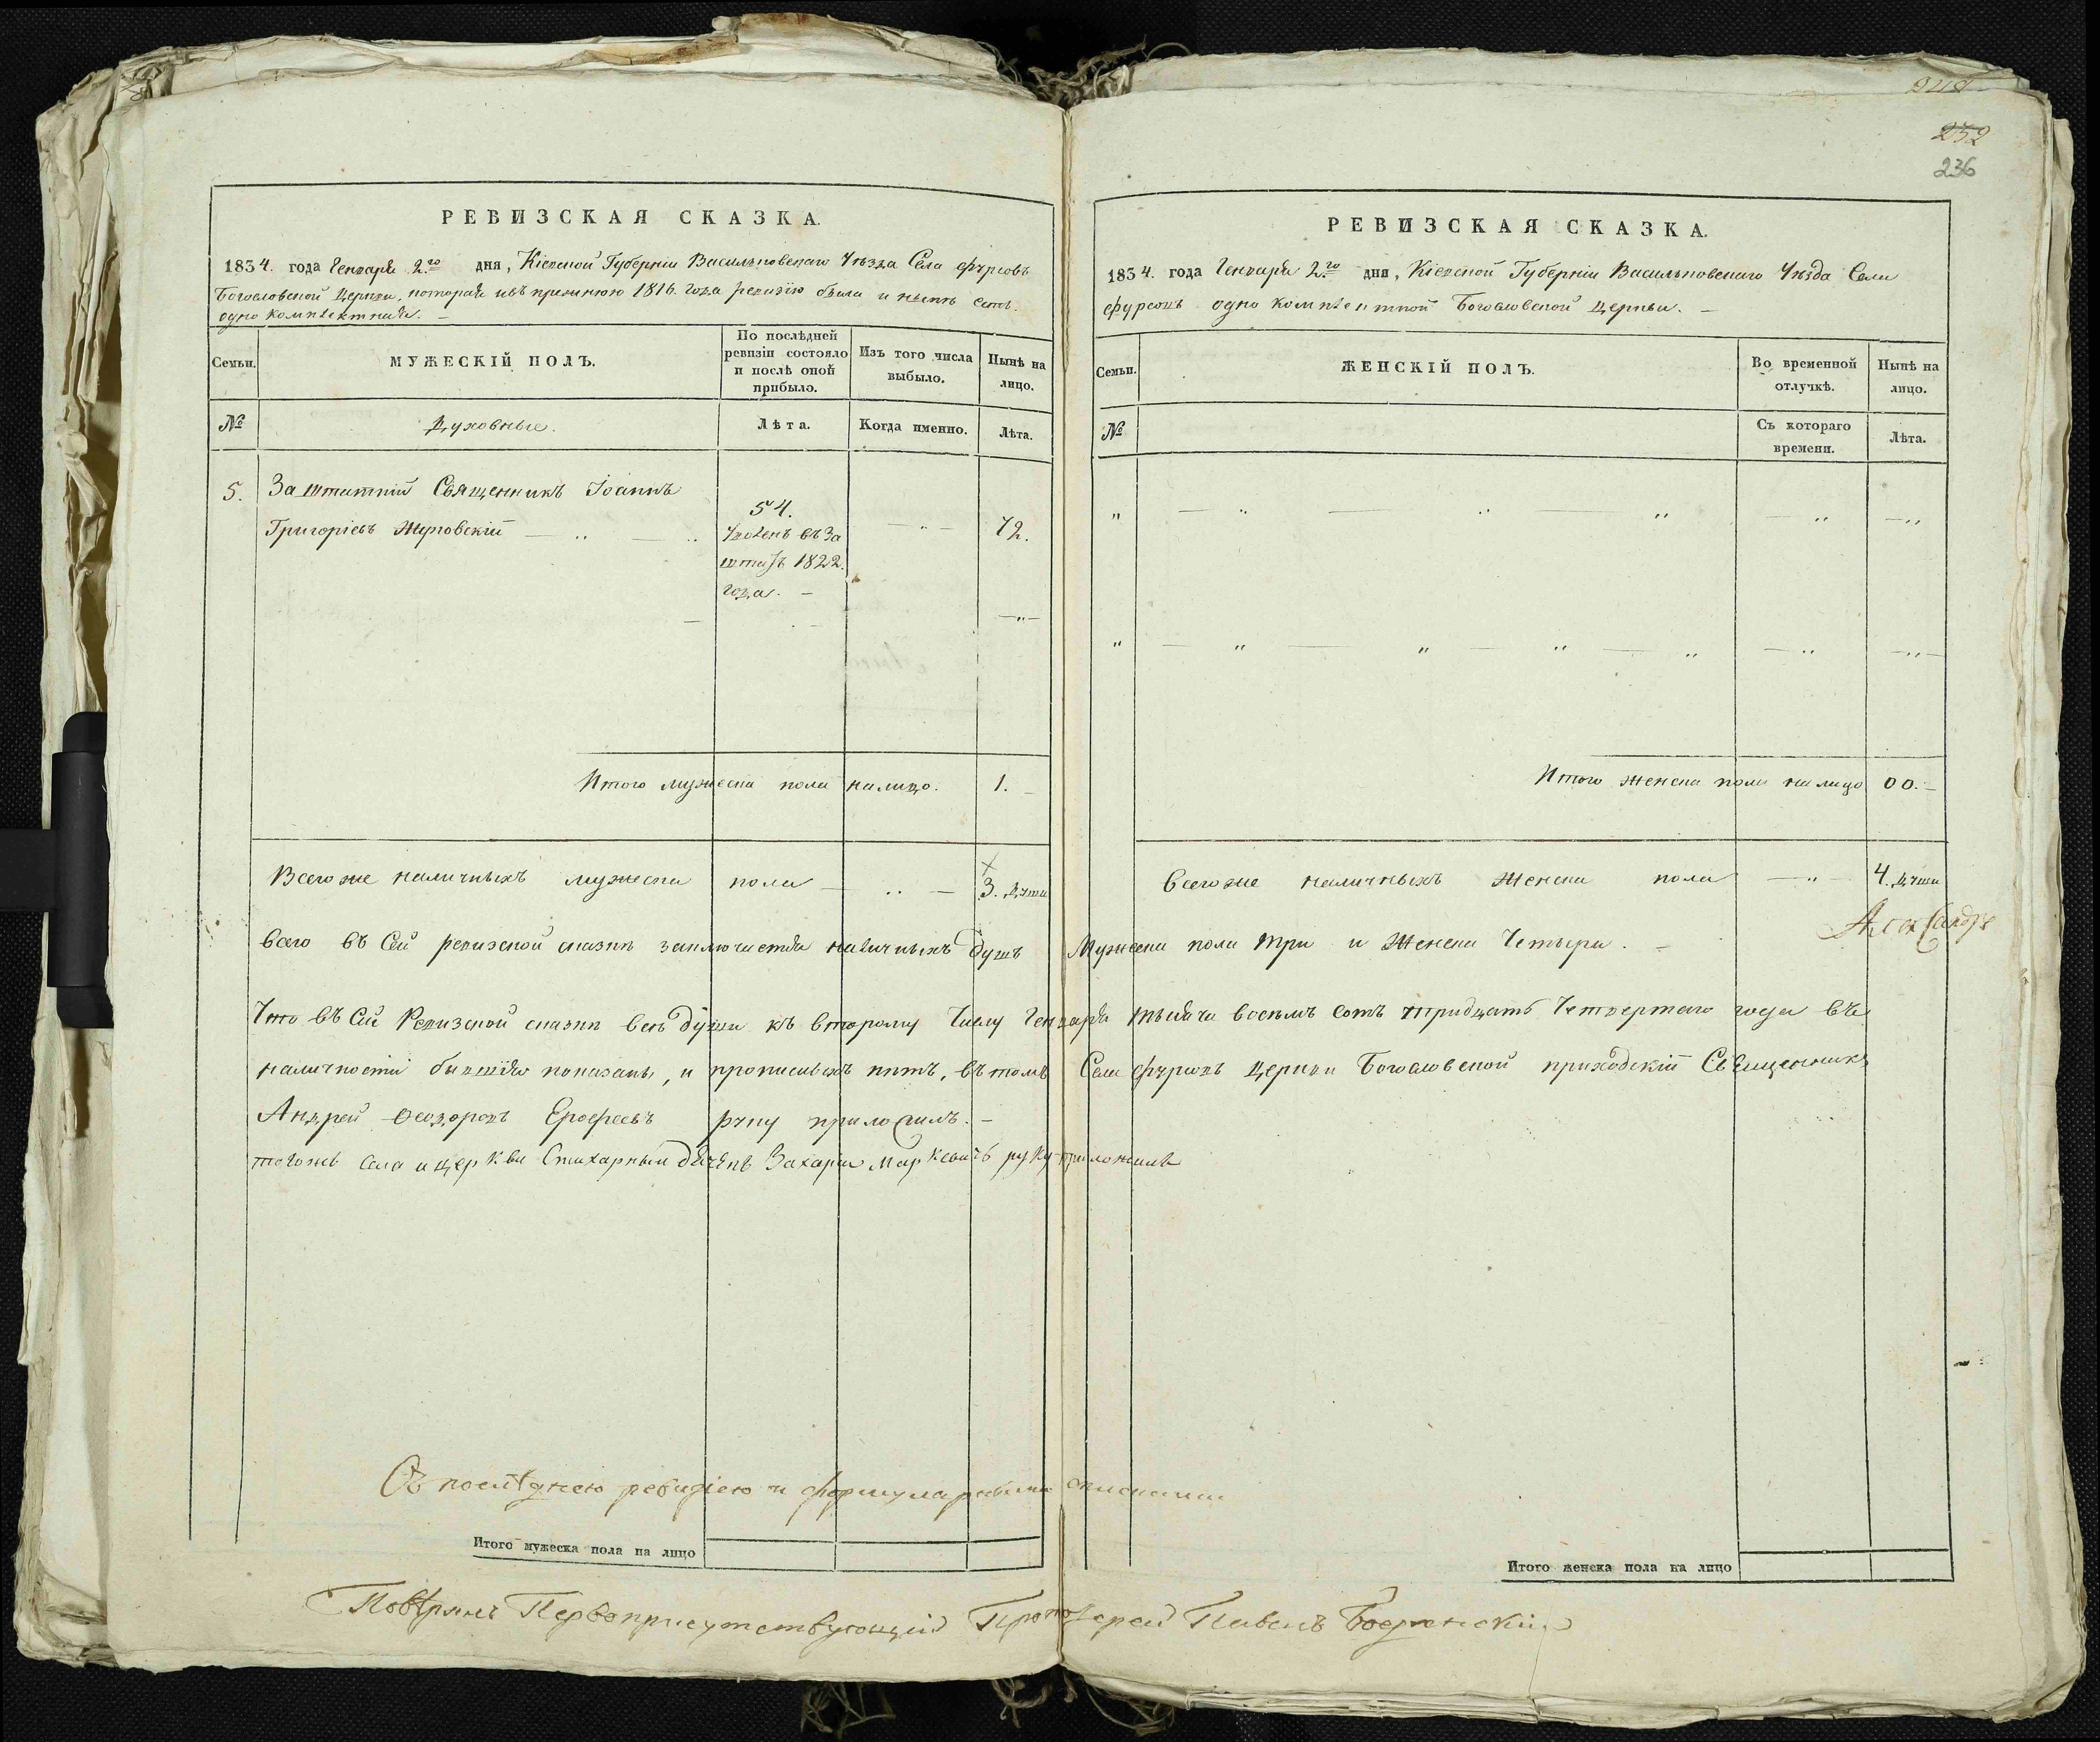 252
236
РЕВИЗСКАЯ СКАЗКА.
1834. года Генваря 2.го дня, Кіевской Губерніи Васильковскаго Уѣзда Села Фурсовъ
Богословской Церкви, которая и въ прежнюю 1816. года ревизію была и нынѣ есть
одно комплектная. —
Семьи.
МУЖЕСКІЙ ПОЛЪ.
По послѣдней ревизіи состояло и послѣ оной прибыло.
Изъ того числа выбыло.
Нынѣ на лицо.
№
Духовные.
Лѣта.
Когда именно.
Лѣта.
5. Заштатній Священникъ Іоаннъ
Григоріевъ Жуковскій
54.
въ За
штатъ 1822.
года. —
72.
Итого мужеска пола налицо. 1. —
Всего же наличныхъ мужеска пола — 3. души
РЕВИЗСКАЯ СКАЗКА.
1834. года Генваря 2.го дня, Кіевской Губерніи Васильковскаго Уѣзда Села
Фурсовъ одно комплектной Богословской Церкви. —
Семьи.
ЖЕНСКІЙ ПОЛЪ.
Во временной отлучкѣ.
Нынѣ на лицо.
№
Съ котораго времени.
Лѣта.
Итого женска пола на лицо 00. —
Всего же наличныхъ женска пола — 4. души
всего въ сей ревизской сказкѣ заключается наличныхъ душъ Мужеска пола три и Женска Четыри. —
Что въ сей Ревизской сказкѣ всѣ души къ второму Числу Генваря тысяча восемъ сотъ тридцать Четвертаго года въ
наличности бывшія показаны, и прописныхъ нѣтъ, въ томъ Села Фурсовъ Церкви Богословской приходскій Священникъ
Андрей Феодоровъ Ерофеевъ руку приложилъ. —
тогожъ села и церкви Стихарный дьячекъ Захарія Маркевичъ руку приложилъ
Съ послѣднею ревизіею и формулярными
Итого мужеска пола на лицо
Итого женска пола на лицо
Повѣрялъ Первоприсутствующій Протоіерей Павелъ